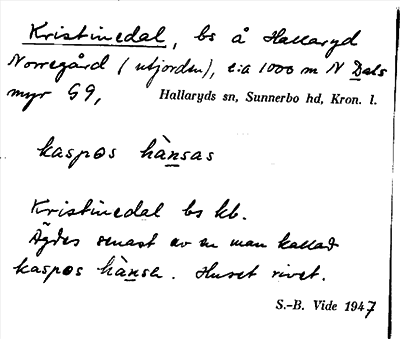 Kristinedal, bs å Hallaryd
Norregård (utjorden), c:a 1000 m N Dals
myr G9,
Hallaryds sn, Sunnerbo hd, Kron. l.
kaspos hànsas
Kristinedal bs kb.
Ägdes senast av en man kallad
kaspos hànsa. Huset rivet.
S.-B. Vide 1947